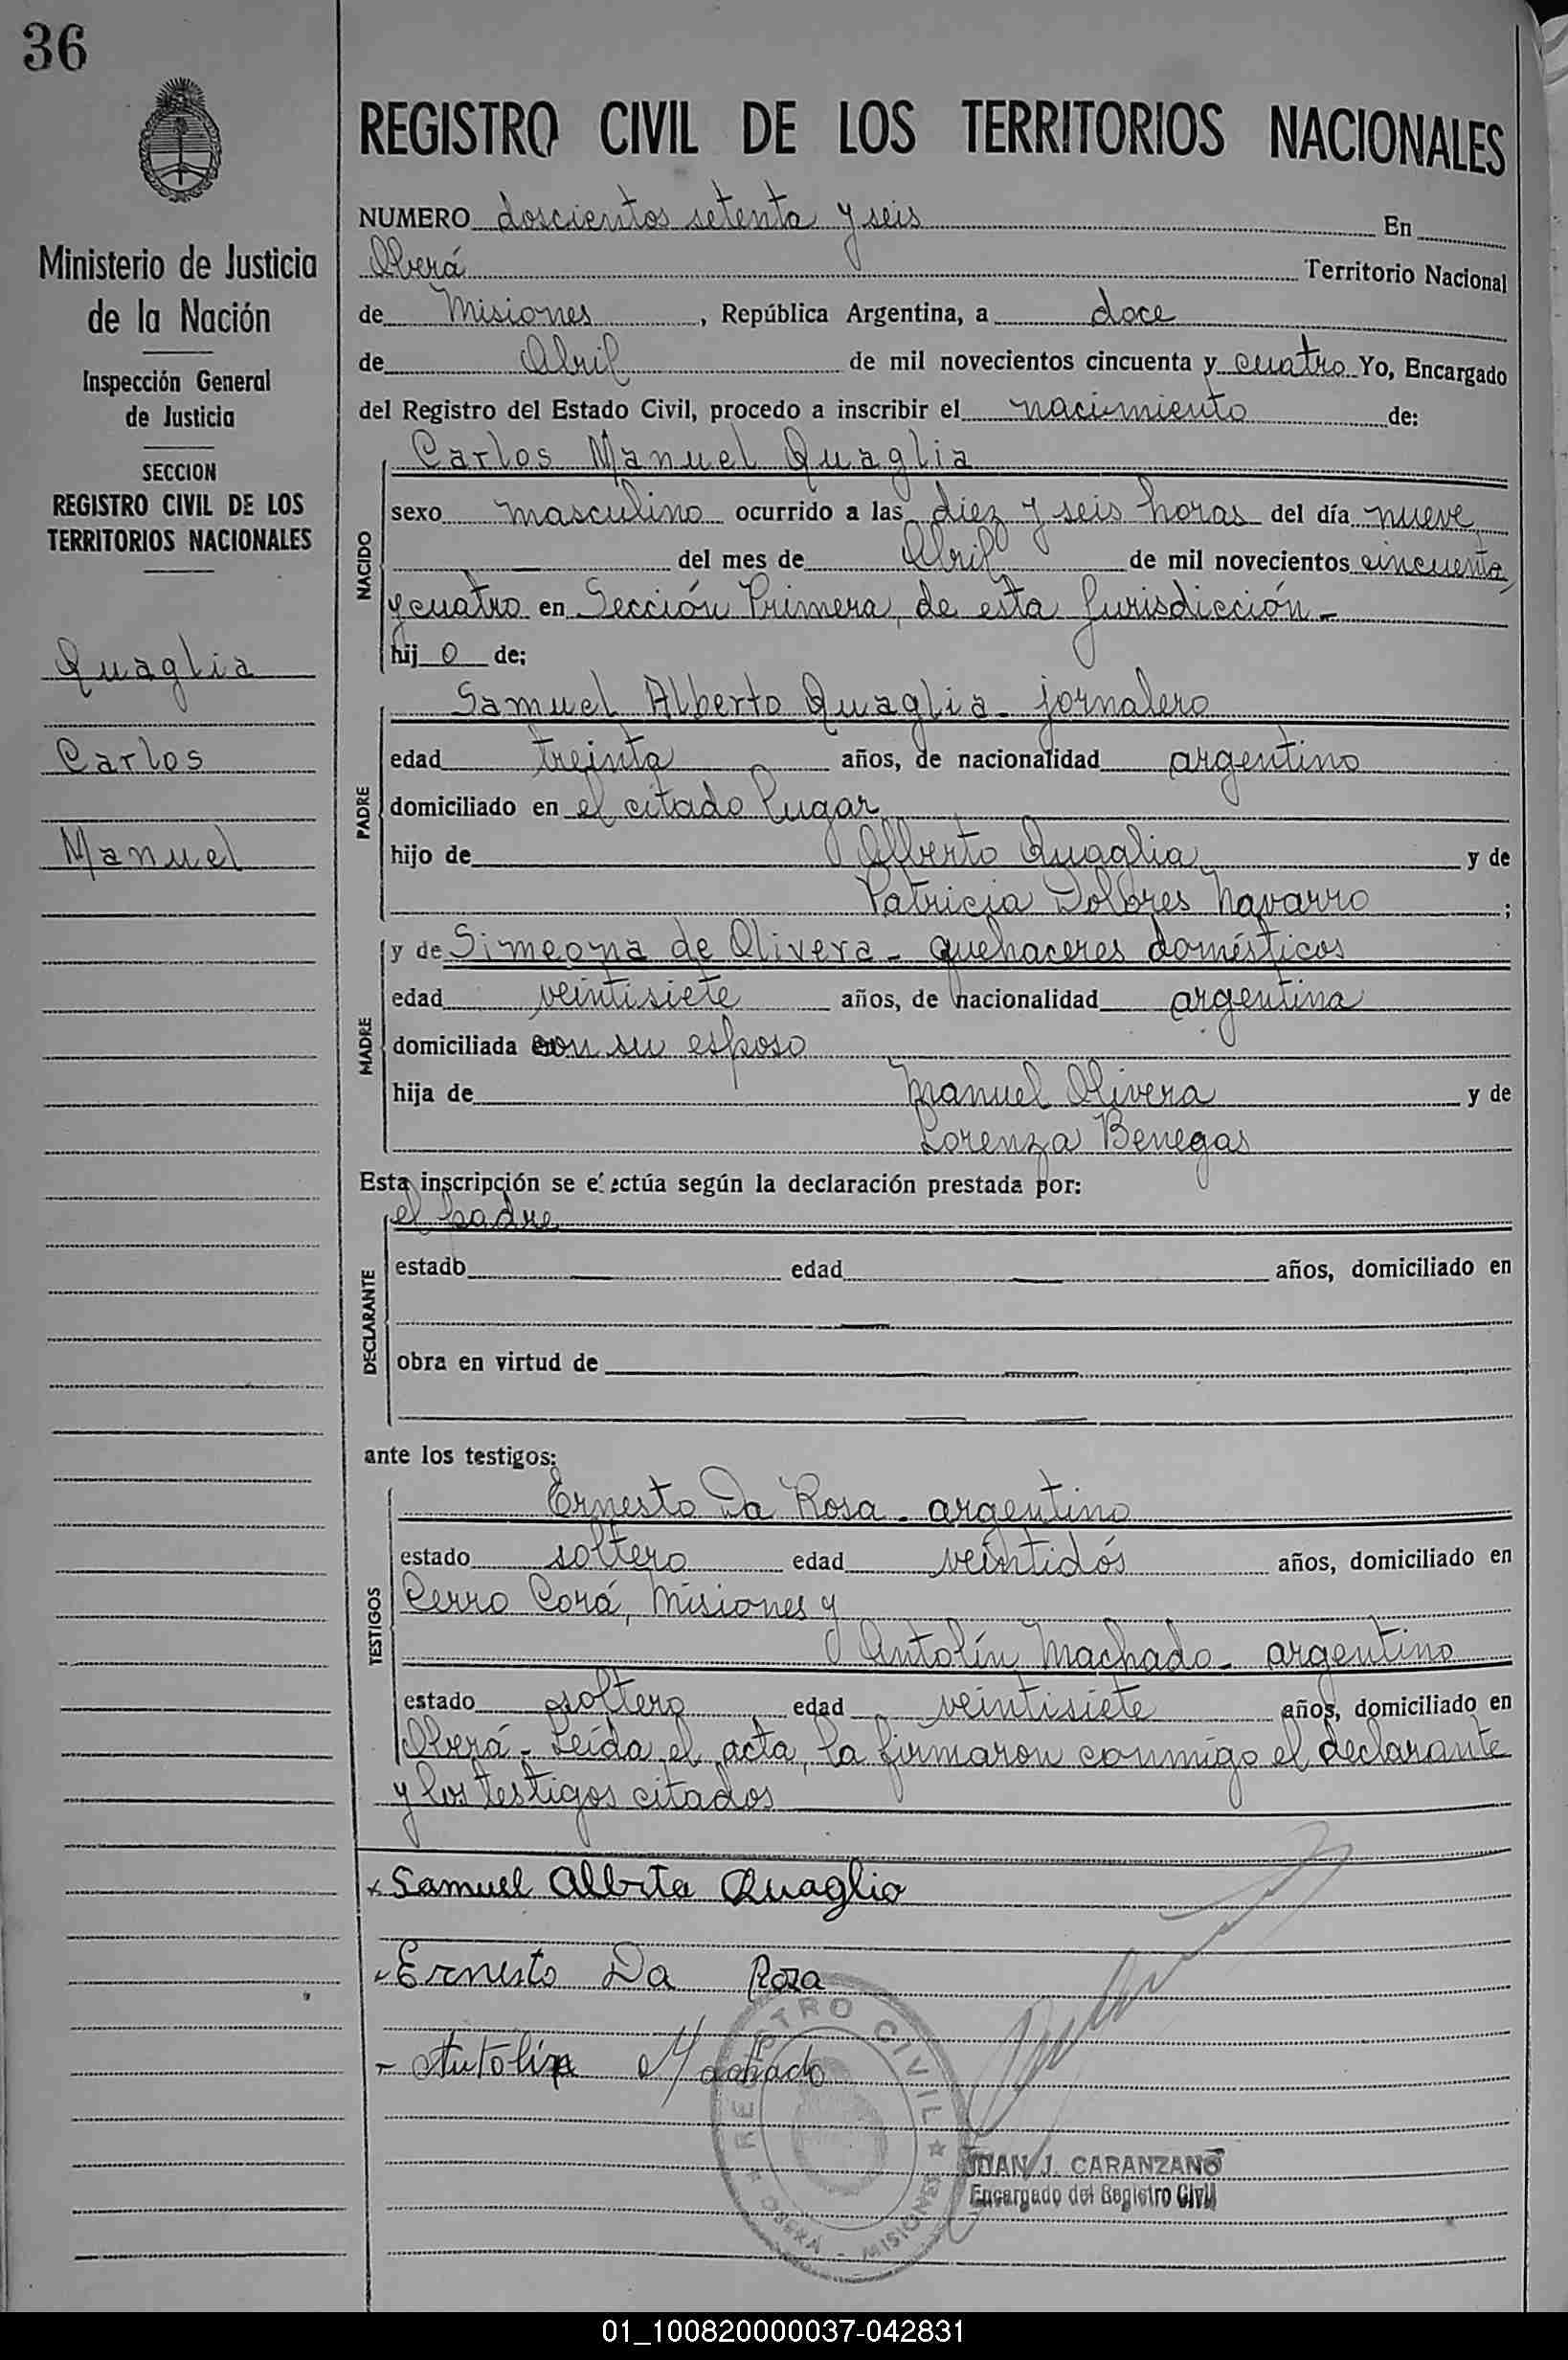 36
REGISTRO CIVIL DE LOS TERRITORIOS NACIONALES
Ministerio de Justicia
de la Nación
Inspección General
de Justicia
SECCION
REGISTRO CIVIL DE LOS
TERRITORIOS NACIONALES
Quaglia
Carlos
Manuel
NUMERO doscientos setenta y seis En
Oberá Territorio Nacional
de Misiones, República Argentina, a doce
de Abril de mil novecientos cincuenta y cuatro Yo, Encargado
del Registro del Estado Civil, procedo a inscribir el nacimiento de:
NACIDO
Carlos Manuel Quaglia
sexo masculino ocurrido a las diez y seis horas del día nueve
del mes de Abril de mil novecientos cincuenta
y cuatro en Sección Primera, de esta Jurisdicción.-
hij o de:
PADRE
Samuel Alberto Quaglia - jornalero
edad treinta años, de nacionalidad argentino
domiciliado en el citado lugar
hijo de Alberto Quaglia y de
Patricia Dolores Navarro ;
MADRE
y de Simeona de Olivera - quehaceres domésticos
edad veintisiete años, de nacionalidad argentina
domiciliada con su esposo
hija de Manuel Olivera y de
Lorenza Benegas
Esta inscripción se efectúa según la declaración prestada por:
DECLARANTE
el padre
estado — edad — años, domiciliado en
—
obra en virtud de —
ante los testigos:
TESTIGOS
Ernesto Da Rosa - argentino
estado soltero edad veintidós años, domiciliado en
Cerro Corá, Misiones y
Antolín Machado - argentino
estado soltero edad veintisiete años, domiciliado en
Oberá - Leída el acta, la firmaron conmigo el declarante
y los testigos citados
Samuel Albrto Quaglia
Ernesto Da Roza
Antolin Machado
REGISTRO CIVIL
OBERA - MISIONES
JUAN J. CARANZANO
Encargado del Registro Civil
01_100820000037-042831